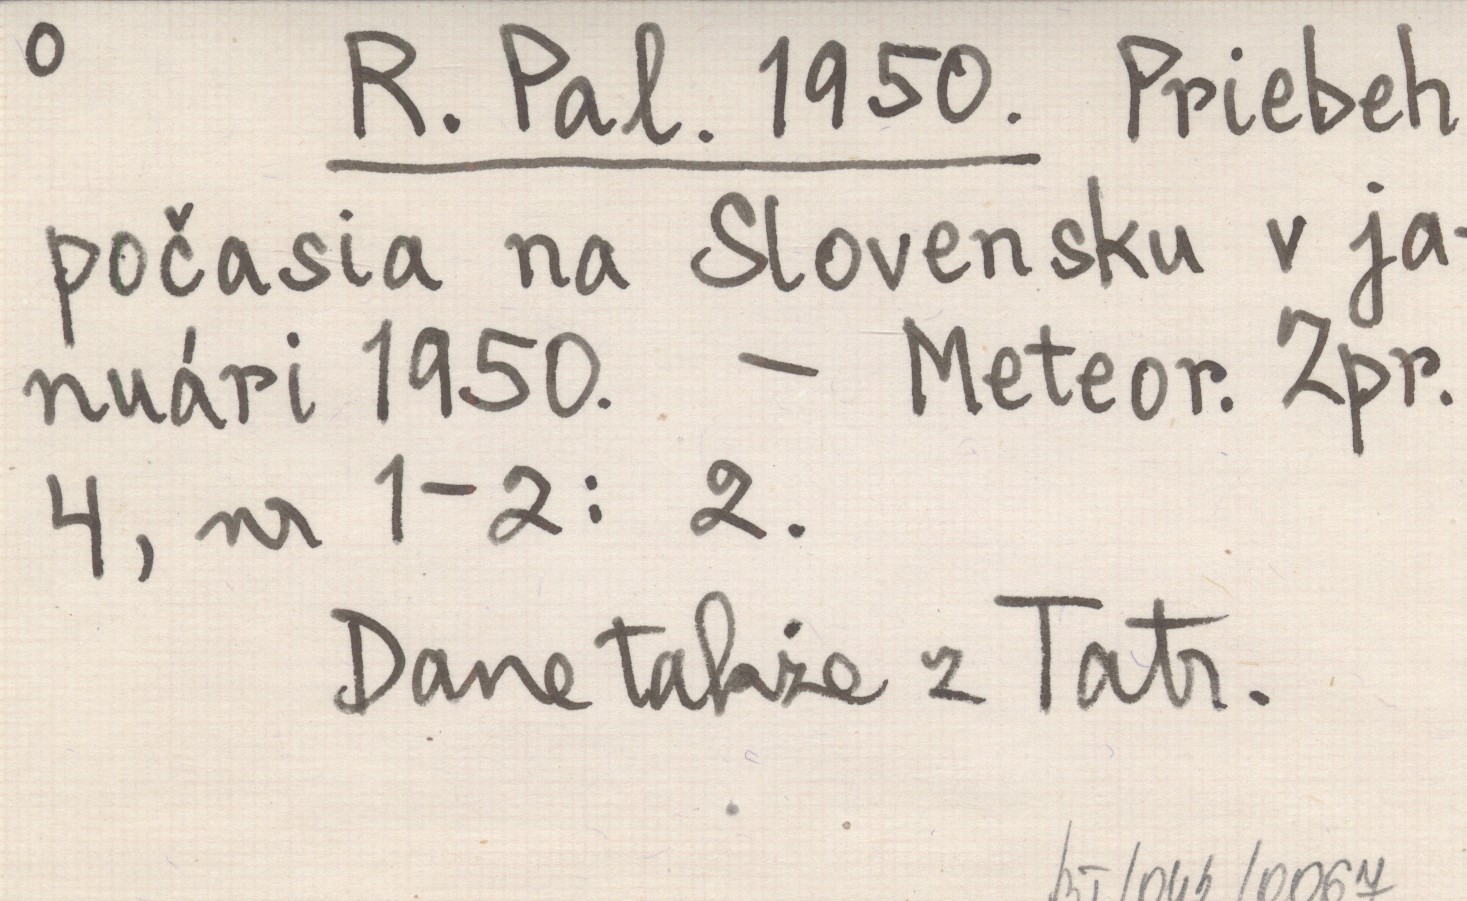 o R. Pal. 1950. Priebeh
počasia na Slovensku v ja-
nuári 1950. — Meteor. Zpr.
4, nr 1-2: 2.
Dane także z Tatr.